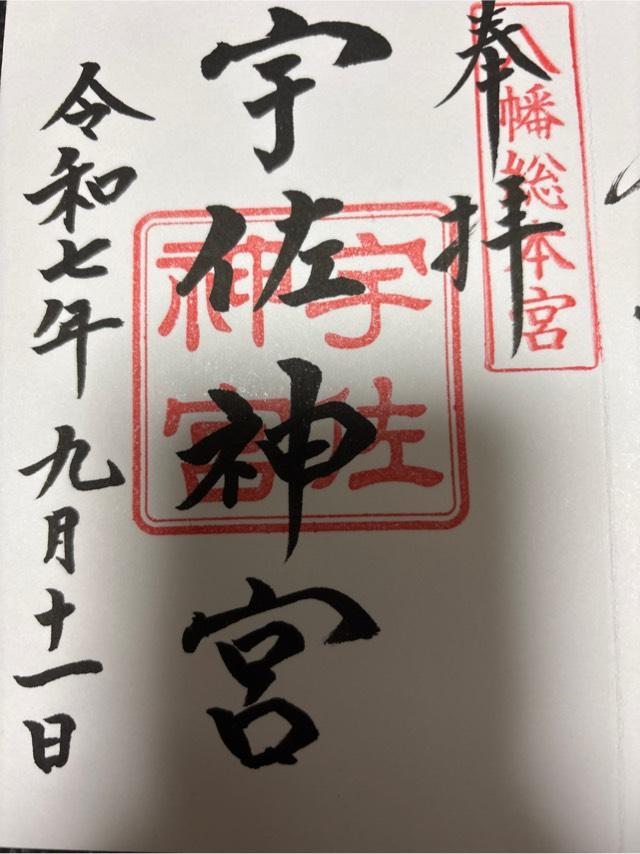 奉拝
八幡総本宮
宇佐神宮
宇佐
神宮
令和七年九月十一日